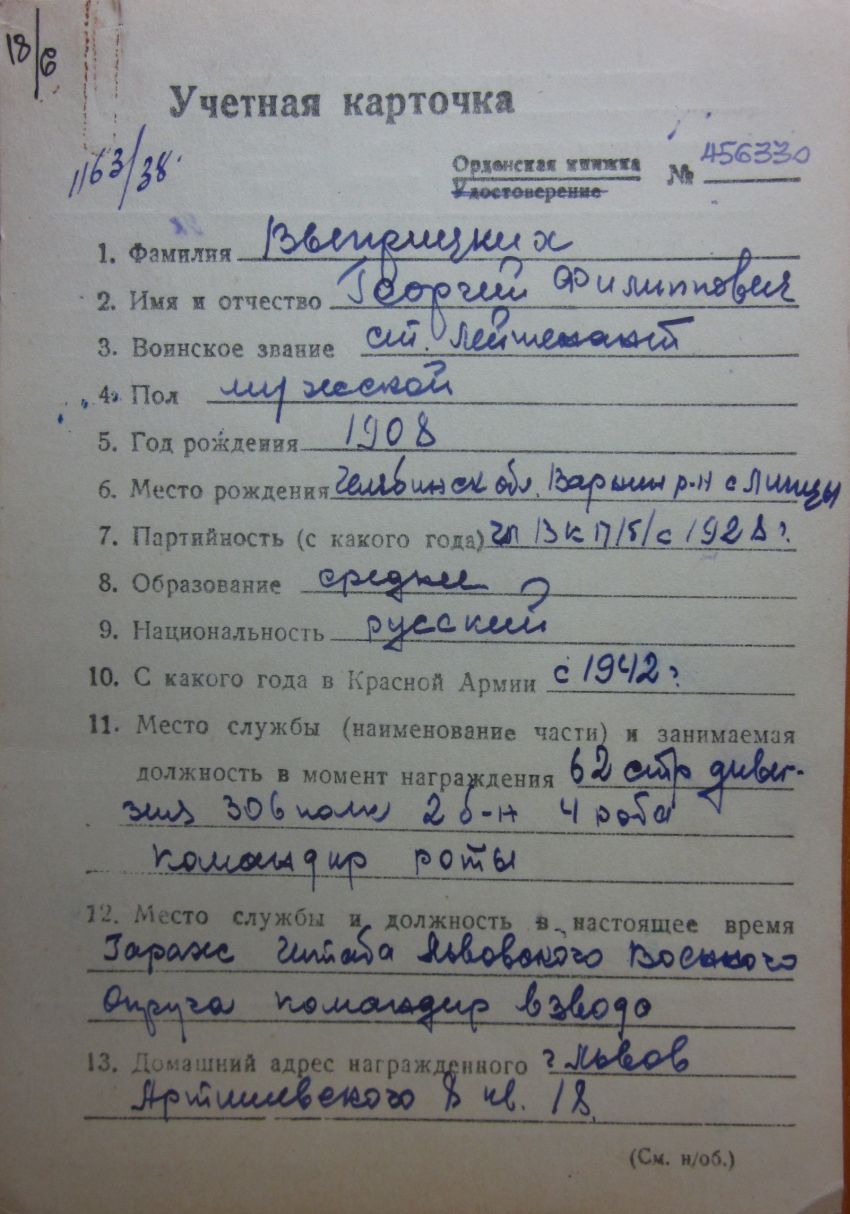 18/6
Учетная карточка
1163/38.
Орденская книжка
Удостоверение № 456330
1. Фамилия Ввеприцких
2. Имя и отчество Георгий Филиппович
3. Воинское звание ст. Лейтенант
4. Пол мужской
5. Год рождения 1908
6. Место рождения обл. р-н с
7. Партийность (с какого года) чл ВКП/б/ с 1928 г.
8. Образование среднее
9. Национальность русский
10. С какого года в Красной Армии с 1942 г.
11. Место службы (наименование части) и занимаемая
должность в момент награждения 62 стр дивиз-
зия 306 полк 2 б-н 4 рота
командир роты
12. Место службы и должность в настоящее время
Гараж Штаба Львовского Военного
Округа командир взвода
13. Домашний адрес награжденного г Львов
8 кв. 18.
(См. н/об.)